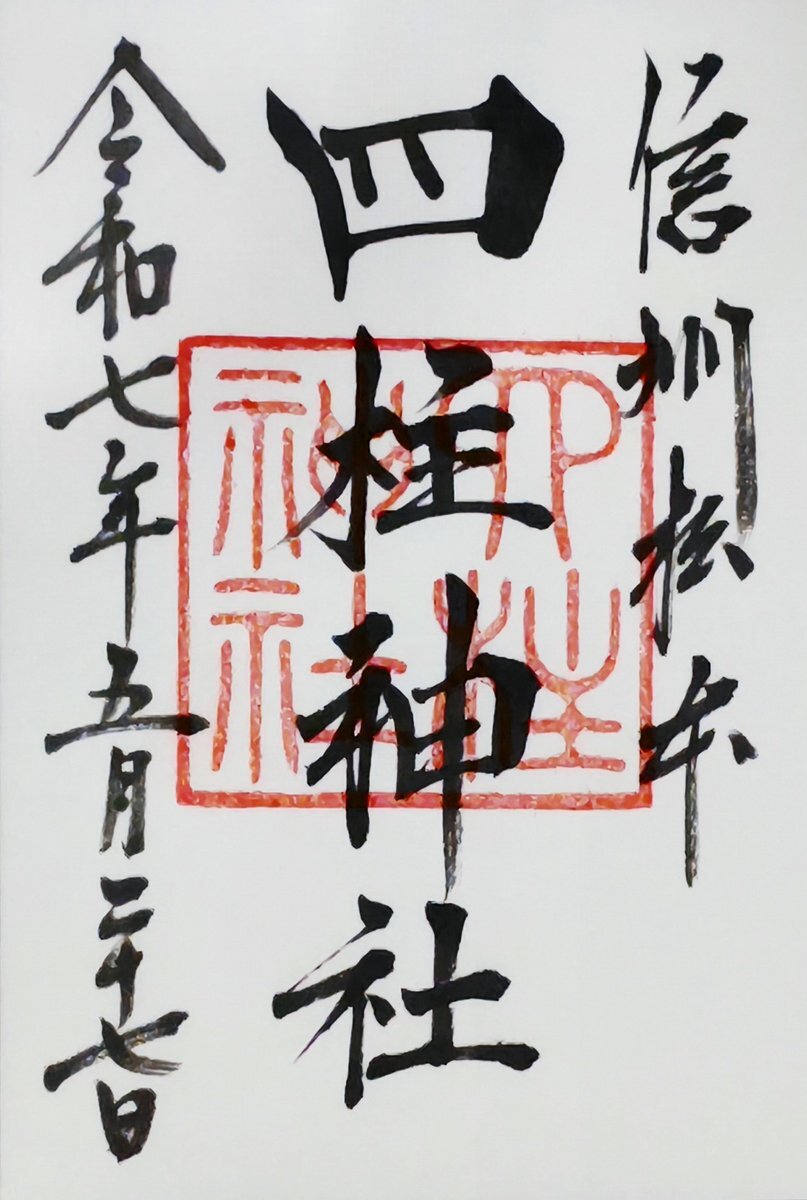 信州松本
四柱神社
令和七年五月二十七日
四柱
神社